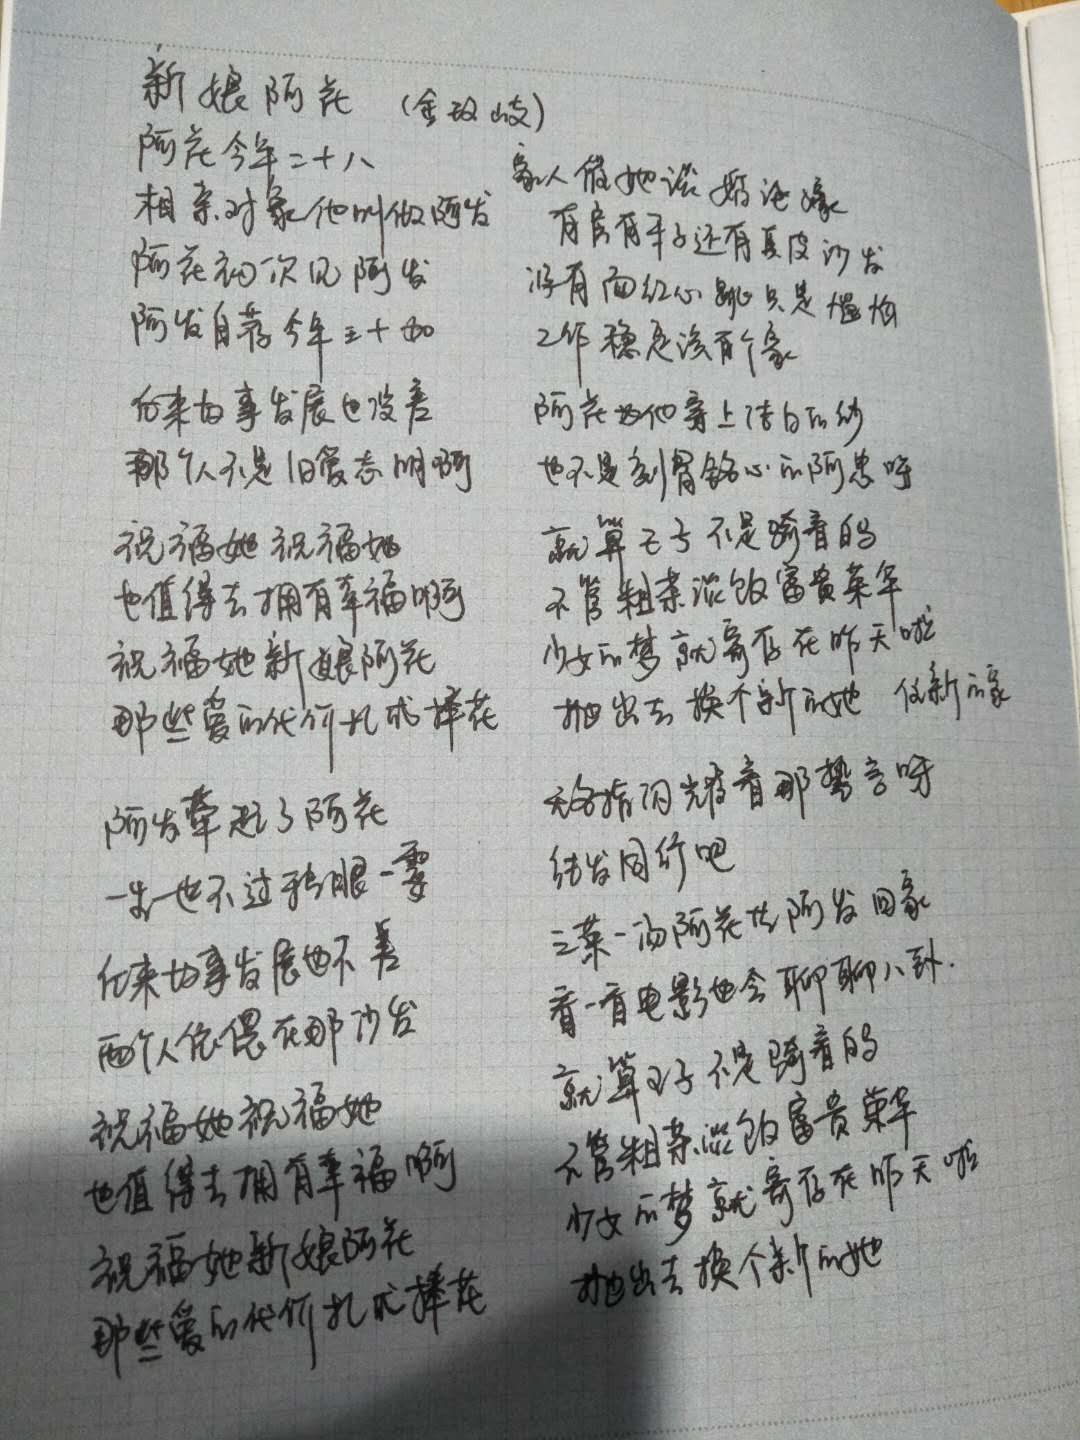 新娘阿花 (金玟岐)
阿花今年二十八
家人催她谈婚论嫁
相亲对象他叫做阿发
有房有车子还有真皮沙发
阿花初次见阿发
没有面红心跳只是尴尬
阿发自荐今年三十加
工作稳定该有个家
后来故事发展也没差
阿花为他穿上洁白的纱
那个人不是旧爱志明啊
也不是刻骨铭心的阿忠呀
祝福她祝福她
就算王子不是骑着的
也值得去拥有幸福啊
不管粗茶淡饭富贵荣华
祝福她新娘阿花
少女的梦就寄存在昨天啦
那些爱的代价扎成捧花
抛出去换个新的她 任新的家
阿发牵起了阿花
无名指闪耀着那誓言呀
一步也不过转眼一霎
结发同行吧
三菜一汤阿花等阿发回家
后来故事发展也不差
看一看电影也会聊聊八卦.
两个人依偎在那沙发
祝福她祝福她
就算王子不是骑着的
也值得去拥有幸福啊
不管粗茶淡饭富贵荣华
祝福她新娘阿花
少女的梦就寄存在昨天啦
那些爱的代价扎成捧花
抛出去换个新的她